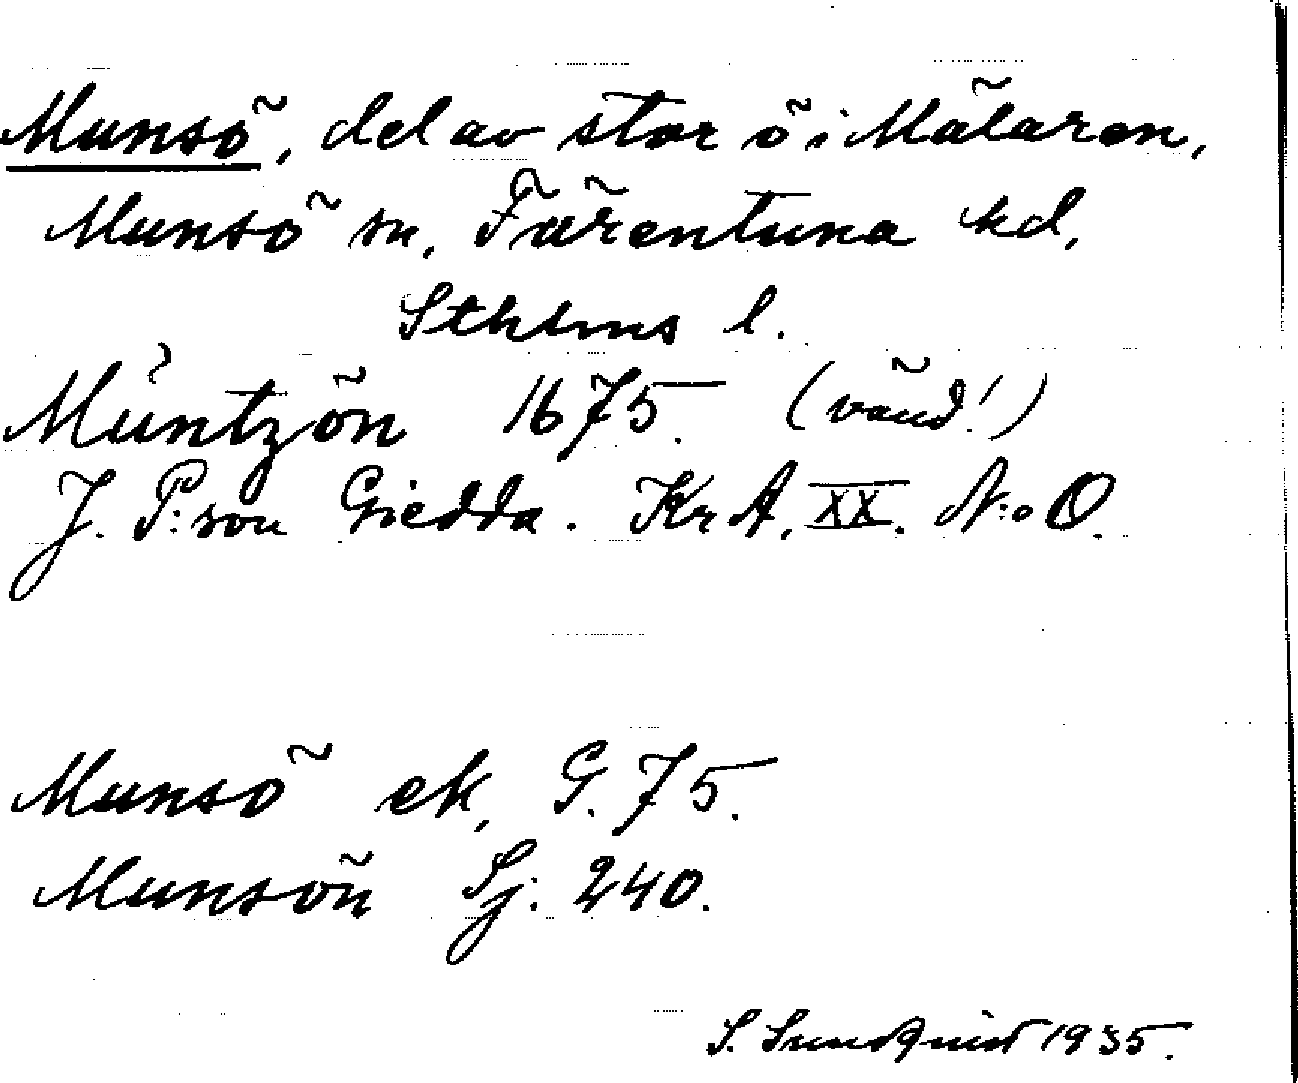 Munsö, del av stor ö i Mälaren,
Munsö sn, Färentuna hd,
Sthlms l.
Müntzön 1675. (vänd!)
J. P:son Giedda. KrA, XX. N:o O.
Munsö ek, G. 75.
Munsön Sj. 240.
S. Sundquist 1935.